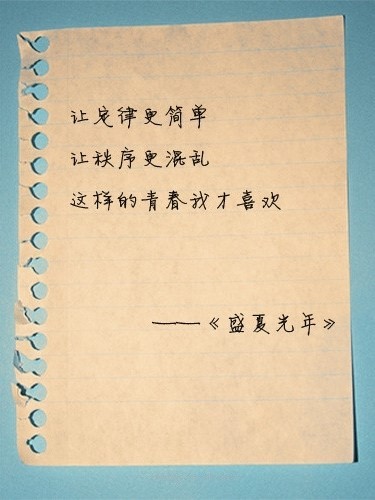 让定律更简单
让秩序更混乱
这样的青春我才喜欢
——《盛夏光年》